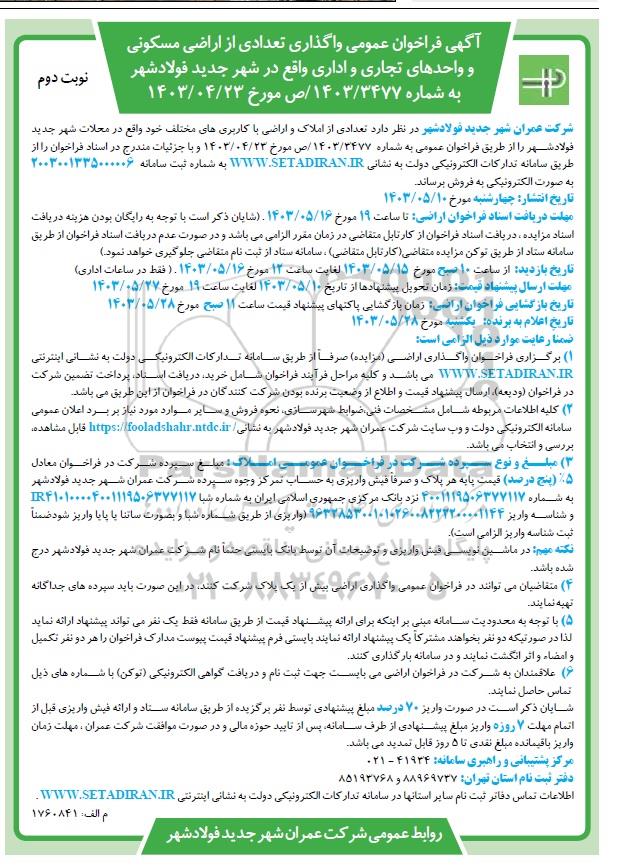 آگهی فراخوان عمومی واگذاری تعدادی از اراضی مسکونی
و واحدهای تجاری و اداری واقع در شهر جدید فولادشهر
به شماره ۱۴۰۳/۳۴۷۷/ص مورخ ۱۴۰۳/۰۴/۲۳
نوبت دوم
شرکت عمران شهر جدید فولادشهر در نظر دارد تعدادی از املاک و اراضی با کاربری های مختلف خود واقع در محلات شهر جدید
فولادشهر را از طریق فراخوان عمومی به شماره ۱۴۰۳/۳۴۷۷/ص مورخ ۱۴۰۳/۰۴/۲۳ و با جزئیات مندرج در اسناد فراخوان را از
طریق سامانه تدارکات الکترونیکی دولت به نشانی WWW.SETADIRAN.IR به شماره ثبت سامانه ۲۰۰۳۰۰۱۳۳۵۰۰۰۰۰۶
به صورت الکترونیکی به فروش برساند.
تاریخ انتشار: چهارشنبه مورخ ۱۴۰۳/۰۵/۱۰
مهلت دریافت اسناد فراخوان اراضی: تا ساعت ۱۹ مورخ ۱۴۰۳/۰۵/۱۶ . (شایان ذکر است با توجه به رایگان بودن هزینه دریافت
اسناد مزایده ، دریافت اسناد فراخوان از کارتابل متقاضی در زمان مقرر الزامی می باشد و در صورت عدم دریافت اسناد فراخوان از طریق
سامانه ستاد از طریق توکن مزایده متقاضی(کارتابل متقاضی) ، سامانه ستاد از ثبت نام متقاضی جلوگیری خواهد نمود.)
تاریخ بازدید: از ساعت ۱۰ صبح مورخ ۱۴۰۳/۰۵/۱۵ لغایت ساعت ۱۲ مورخ ۱۴۰۳/۰۵/۱۶ . ( فقط در ساعات اداری)
مهلت ارسال پیشنهاد قیمت: زمان تحویل پیشنهادها از تاریخ ۱۴۰۳/۰۵/۱۰ لغایت ساعت ۱۹ مورخ ۱۴۰۳/۰۵/۲۷
تاریخ بازگشایی فراخوان اراضی: زمان بازگشایی پاکتهای پیشنهاد قیمت ساعت ۱۱ صبح مورخ ۱۴۰۳/۰۵/۲۸
تاریخ اعلام به برنده: یکشنبه مورخ ۱۴۰۳/۰۵/۲۸
ضمنا رعایت موارد ذیل الزامی است:
۱) برگزاری فراخوان واگذاری اراضی (مزایده) صرفاً از طریق سامانه تدارکات الکترونیکی دولت به نشانی اینترنتی
WWW.SETADIRAN.IR می باشد و کلیه مراحل فرآیند فراخوان شامل خرید، دریافت اسناد، پرداخت تضمین شرکت
در فراخوان (ودیعه)، ارسال پیشنهاد قیمت و اطلاع از وضعیت برنده بودن شرکت کنندگان در فراخوان از این طریق می باشد.
۲) کلیه اطلاعات مربوطه شامل مشخصات فنی،ضوابط شهرسازی، نحوه فروش و سایر موارد مورد نیاز بر برد اعلان عمومی
سامانه الکترونیکی دولت و وب سایت شرکت عمران شهر جدید فولادشهر به نشانی https://fooladshahr.ntdc.ir/ قابل مشاهده،
بررسی و انتخاب می باشد.
۳) مبلغ و نوع سپرده شرکت در فراخوان عمومی املاک : مبلغ سپرده شرکت در فراخوان معادل
۵٪ (پنج درصد) قیمت پایه هر پلاک و صرفا فیش واریزی به حساب تمرکز وجوه سپرده شرکت عمران شهر جدید فولادشهر
به شماره ۴۰۰۱۱۱۹۵۰۶۳۷۷۱۱۷ نزد بانک مرکزی جمهوری اسلامی ایران به شماره شبا IR۴۱۰۱۰۰۰۰۴۰۰۱۱۱۹۵۰۶۳۷۷۱۱۷
و شناسه واریز ۹۶۳۲۸۵۳۰۰۱۰۱۰۲۶۰۰۸۲۲۲۲۰۰۰۰۱۱۴۴ (واریزی از طریق شماره شبا و بصورت ساتنا یا پایا واریز شودضمناً
ثبت شناسه واریز الزامی است).
نکته مهم: در ماشین نویسی فیش واریزی و توضیحات آن توسط بانک بایستی حتماً نام شرکت عمران شهر جدید فولادشهر درج
شده باشد.
۴) متقاضیان می توانند در فراخوان عمومی واگذاری اراضی بیش از یک پلاک شرکت کنند، در این صورت باید سپرده های جداگانه
تهیه نمایند.
۵) با توجه به محدودیت سامانه مبنی بر اینکه برای ارائه پیشنهاد قیمت از طریق سامانه فقط یک نفر می تواند پیشنهاد ارائه نماید
لذا در صورتیکه دو نفر بخواهند مشترکاً یک پیشنهاد ارائه نمایند بایستی فرم پیشنهاد قیمت پیوست مدارک فراخوان را هر دو نفر تکمیل
و امضاء و اثر انگشت نمایند و در سامانه بارگذاری کنند.
۶) علاقمندان به شرکت در فراخوان اراضی می بایست جهت ثبت نام و دریافت گواهی الکترونیکی (توکن) با شماره های ذیل
تماس حاصل نمایند.
شایان ذکر است در صورت واریز ۷۰ درصد مبلغ پیشنهادی توسط نفر برگزیده از طریق سامانه ستاد و ارائه فیش واریزی قبل از
اتمام مهلت ۷ روزه واریز مبلغ پیشنهادی از طرف سامانه، پس از تایید حوزه مالی و در صورت موافقت شرکت عمران ، مهلت زمان
واریز باقیمانده مبلغ نقدی تا ۵ روز قابل تمدید می باشد.
مرکز پشتیبانی و راهبری سامانه: ۴۱۹۳۴ - ۰۲۱
دفتر ثبت نام استان تهران: ۸۸۹۶۹۷۳۷ و ۸۵۱۹۳۷۶۸
اطلاعات تماس دفاتر ثبت نام سایر استانها در سامانه تدارکات الکترونیکی دولت به نشانی اینترنتی WWW.SETADIRAN.IR .
م الف: ۱۷۶۰۸۴۱
روابط عمومی شرکت عمران شهر جدید فولادشهر